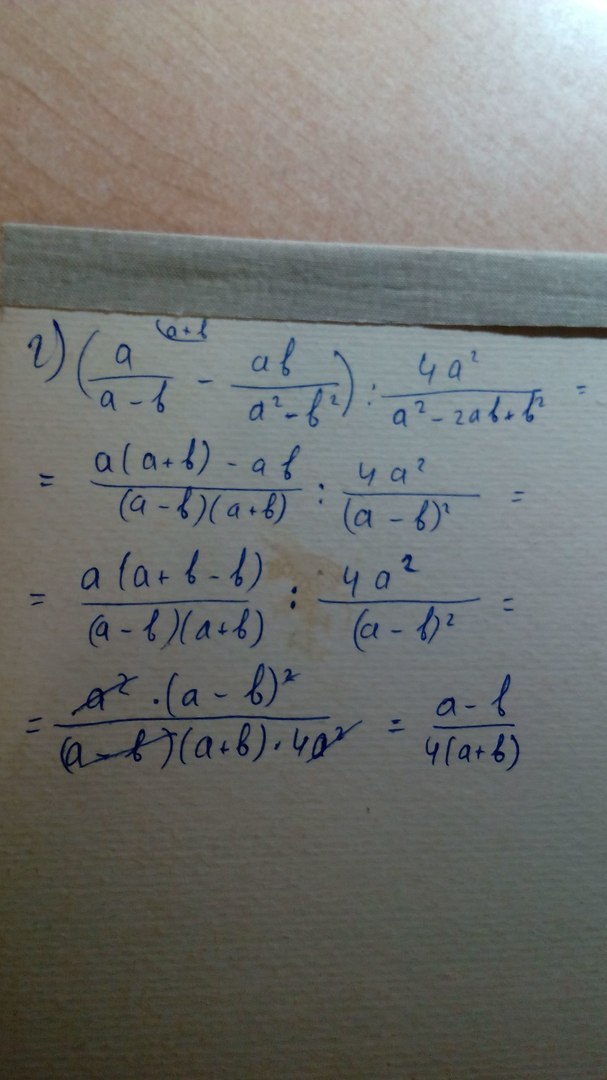 г) (a/(a-b) ^(a+b - ab/(a²-b²)) : 4a²/(a²-2ab+b²) =
= (a(a+b)-ab)/((a-b)(a+b)) : 4a²/(a-b)² =
= a(a+b-b)/((a-b)(a+b)) : 4a²/(a-b)² =
= a²·(a-b)²/((a-b)(a+b)·4a²) = (a-b)/(4(a+b))